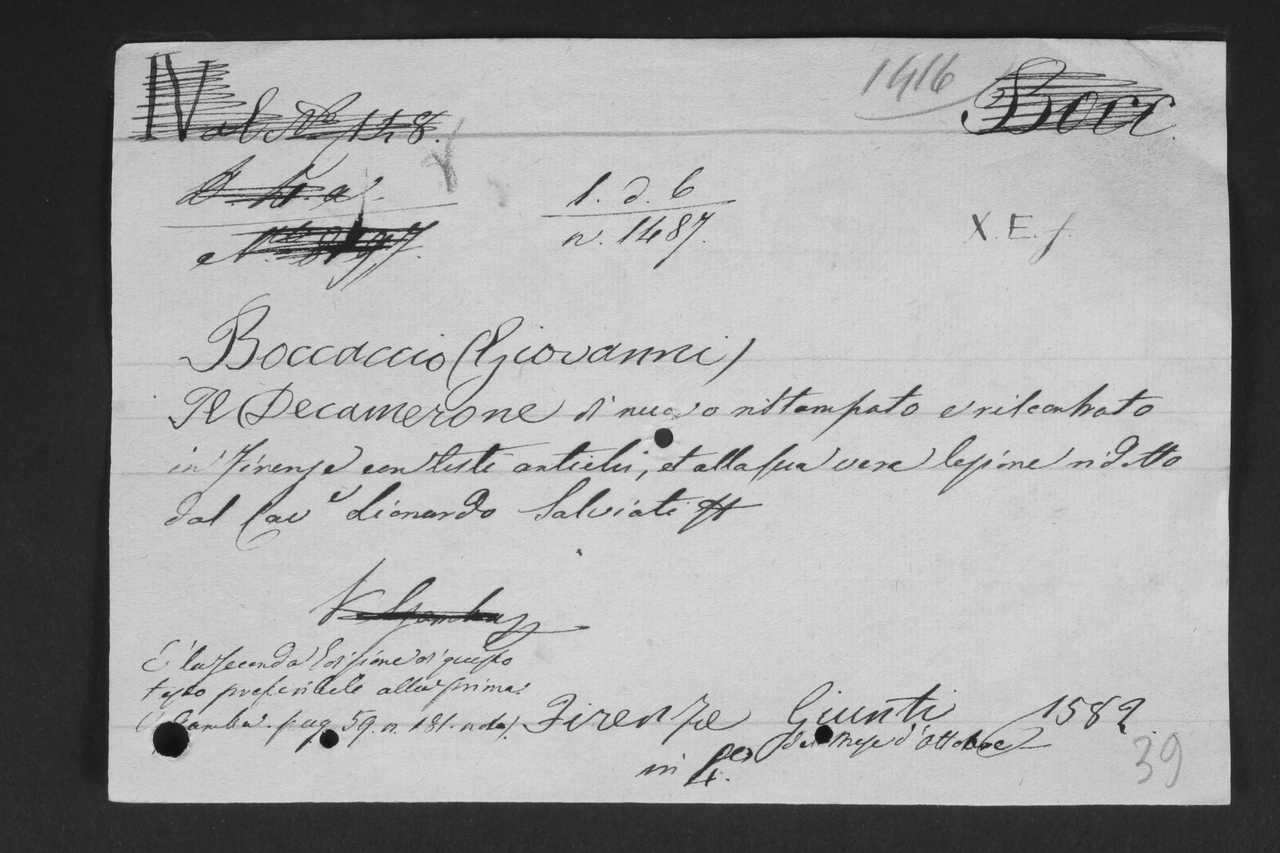 1416
Bocc.
N. 148.
1. d. 6
n. 1487.
X. E. f.
Boccaccio (Giovanni)
Il Decamerone di nuovo ristampato e riscontrato
in Firenze con testi antichi, et alla sua vera lezione ridotto
dal Cav.r Lionardo Salviati
V. Gamba
È la seconda Edizione di questo
testo preferibile alla prima.
(Gamba. pag. 59. n. 181. nota).
Firenze Giunti 1582.
del Mese d'Ottobre
in 4.
39